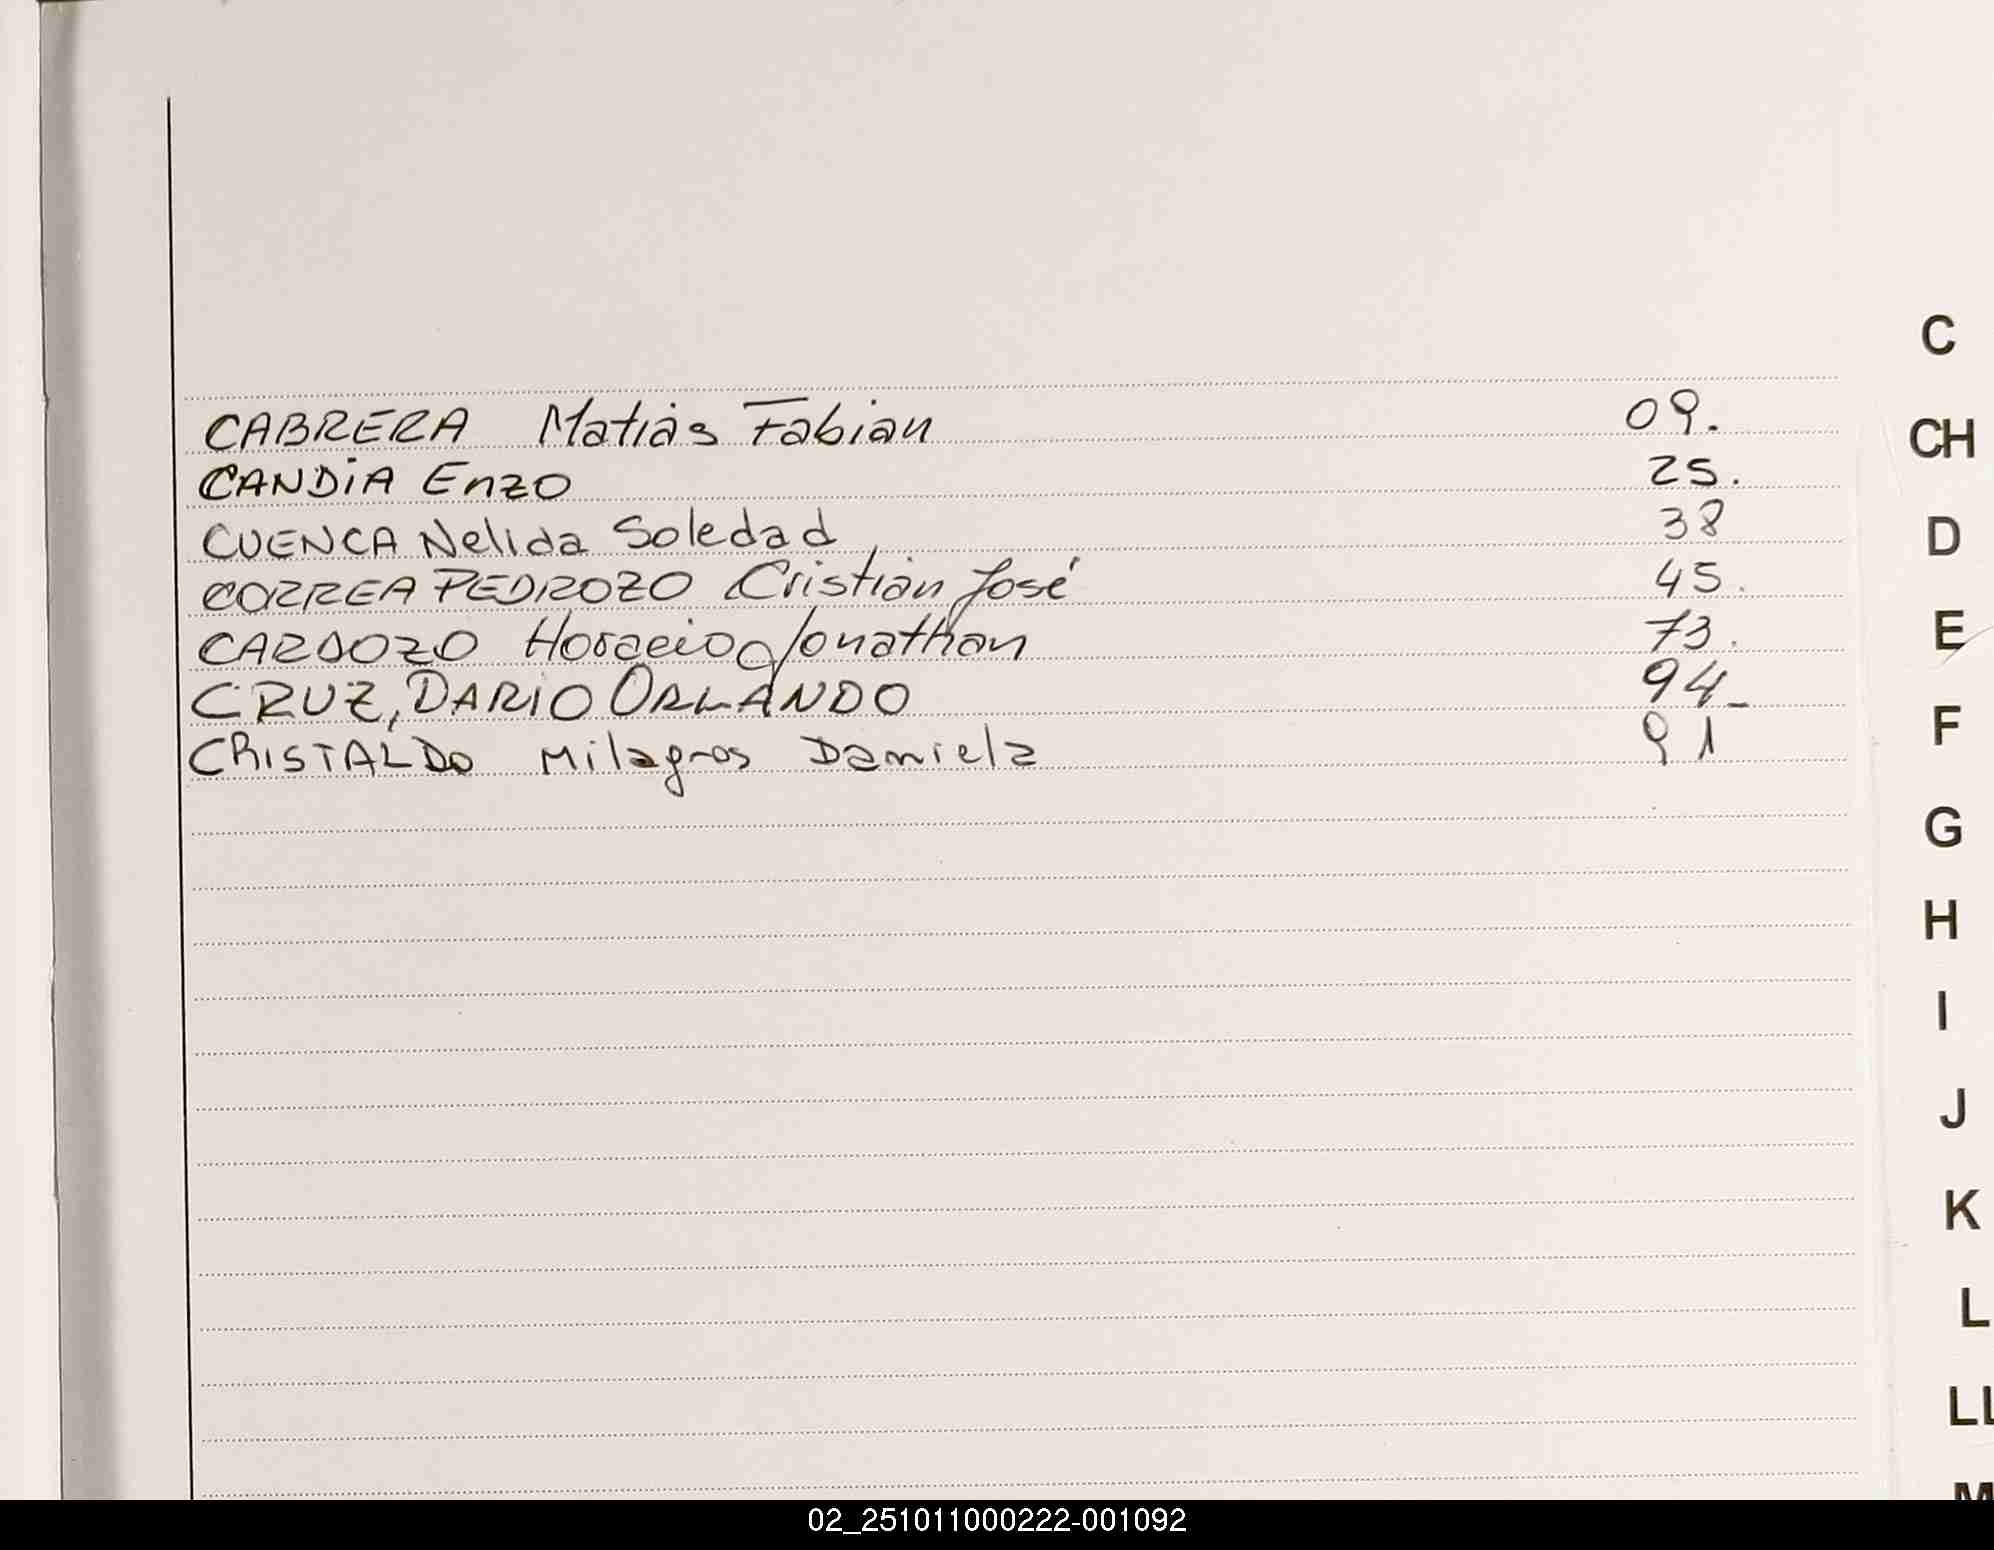 C
CABRERA Matiás Fabián 09.
CH
CANDIA Enzo 25.
CUENCA Nelida Soledad 38
D
CORREA PEDROZO Cristián José 45.
CARDOZO Horacio Jonathan 73.
E
CRUZ, DARIO ORLANDO 94_
F
CRISTALDO Milagros Daniela 91
G
H
I
J
K
L
LL
M
02_251011000222-001092